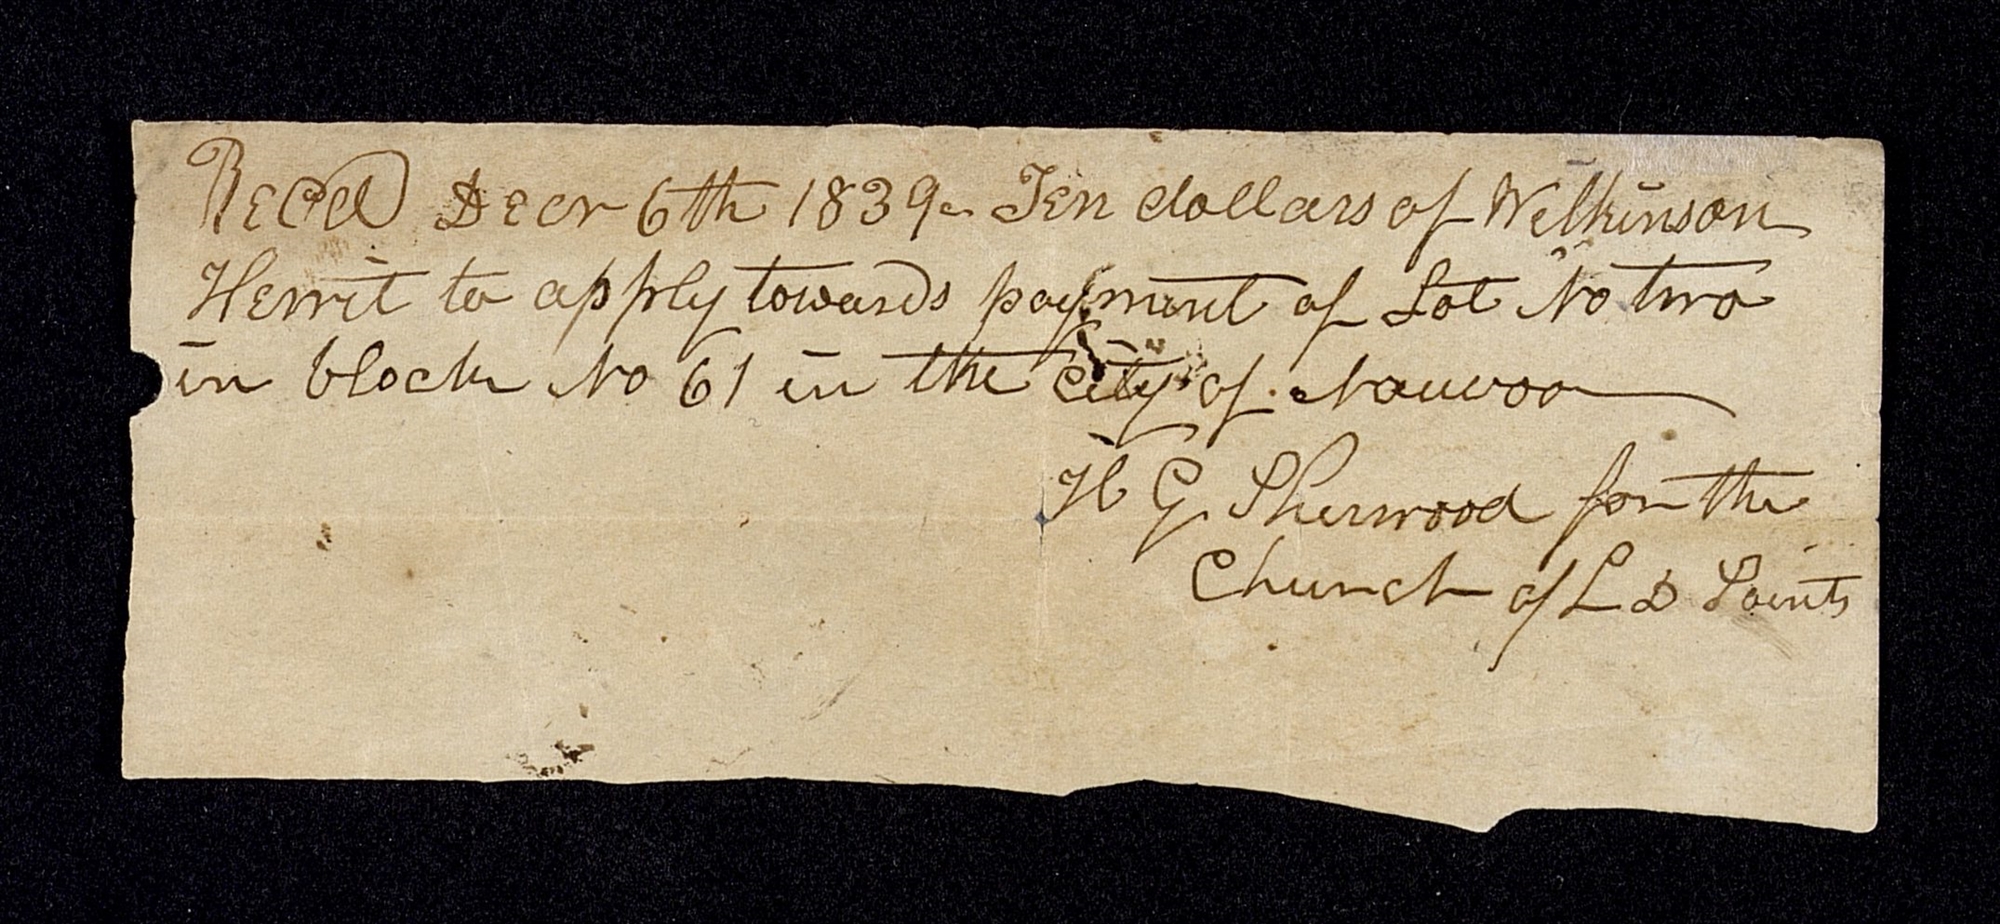 Recd Decr 6th 1839- Ten dollars of Wilkinson
Hewit to apply towards payment of Lot No two
in block No 61 in the city of Nauvoo
H G Sherwood for the
Church of L D Saints